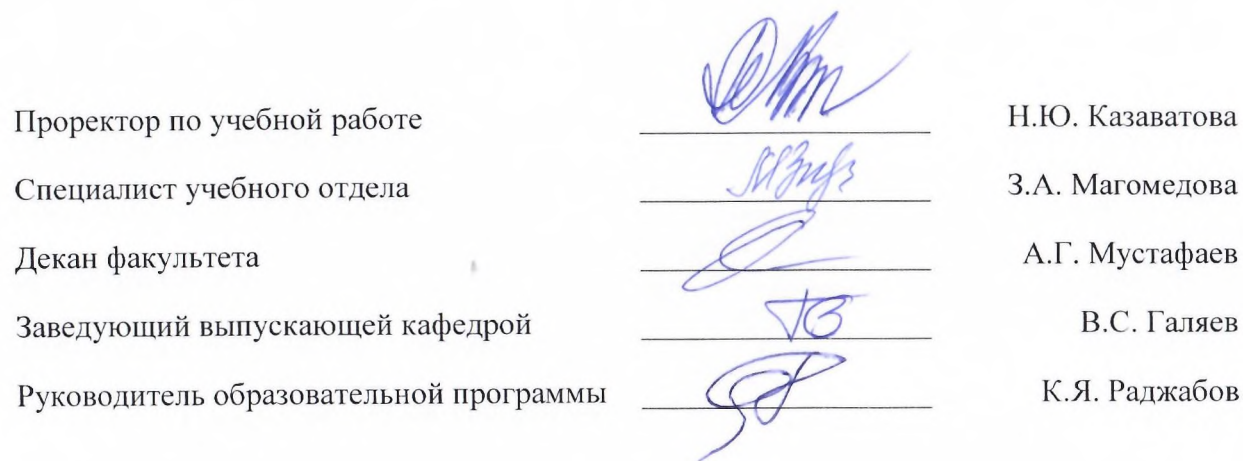 Проректор по учебной работе Н.Ю. Казаватова
Специалист учебного отдела З.А. Магомедова
Декан факультета А.Г. Мустафаев
Заведующий выпускающей кафедрой В.С. Галяев
Руководитель образовательной программы К.Я. Раджабов